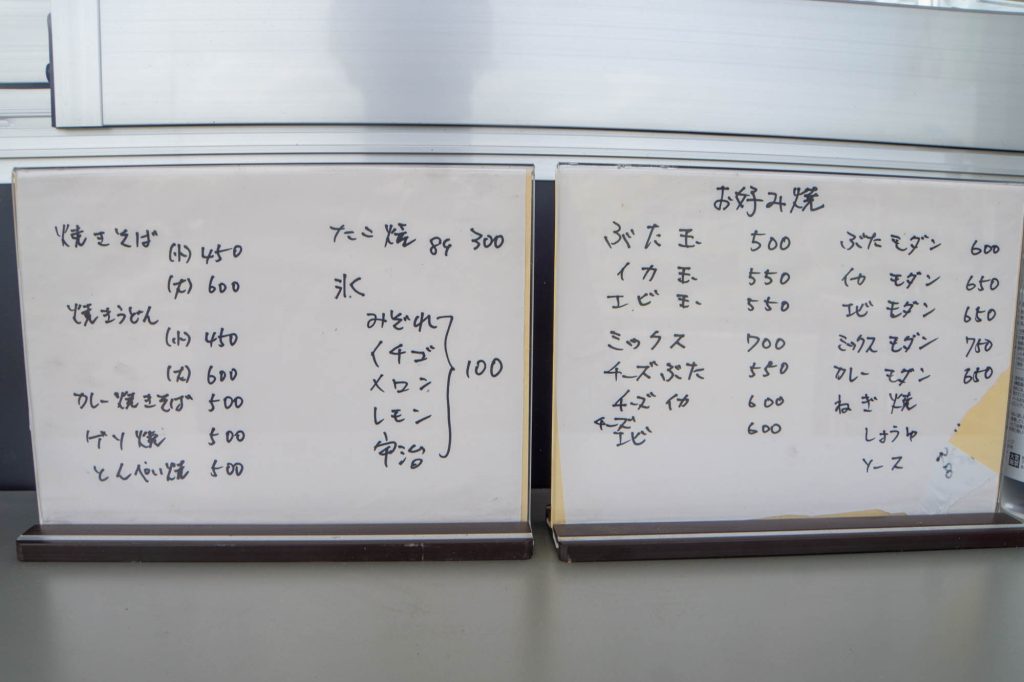 焼きそば
(小) 450
(大) 600
焼きうどん
(小) 450
(大) 600
カレー焼きそば 500
ゲソ焼 500
とんぺい焼 500
たこ焼 8ヶ 300
氷
みぞれ
イチゴ
メロン
レモン
宇治
100
お好み焼
ぶた玉 500
イカ玉 550
エビ玉 550
ミックス 700
チーズぶた 550
チーズイカ 600
チーズ
エビ 600
ぶたモダン 600
イカモダン 650
エビモダン 650
ミックスモダン 750
カレーモダン 650
ねぎ焼
しょうゆ
ソース